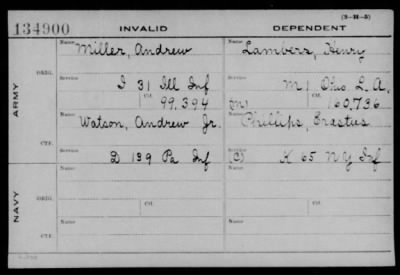 (3-H-5)
134900 INVALID DEPENDENT
ARMY
ORIG.
Name Miller, Andrew
Name Lambers, Henry
Service I 31 Ill Inf
Service M 1 Ohio L. A.
Ctf. 99,394
(m) Ctf. 160,736
CTF.
Name Watson, Andrew Jr.
Name Phillips, Erastus
Service D 139 Pa Inf
Service (C) K 65 N Y Inf
NAVY
ORIG.
Name
Name
Service Ctf.
Service Ctf.
CTF.
Name
Name
Service
Service